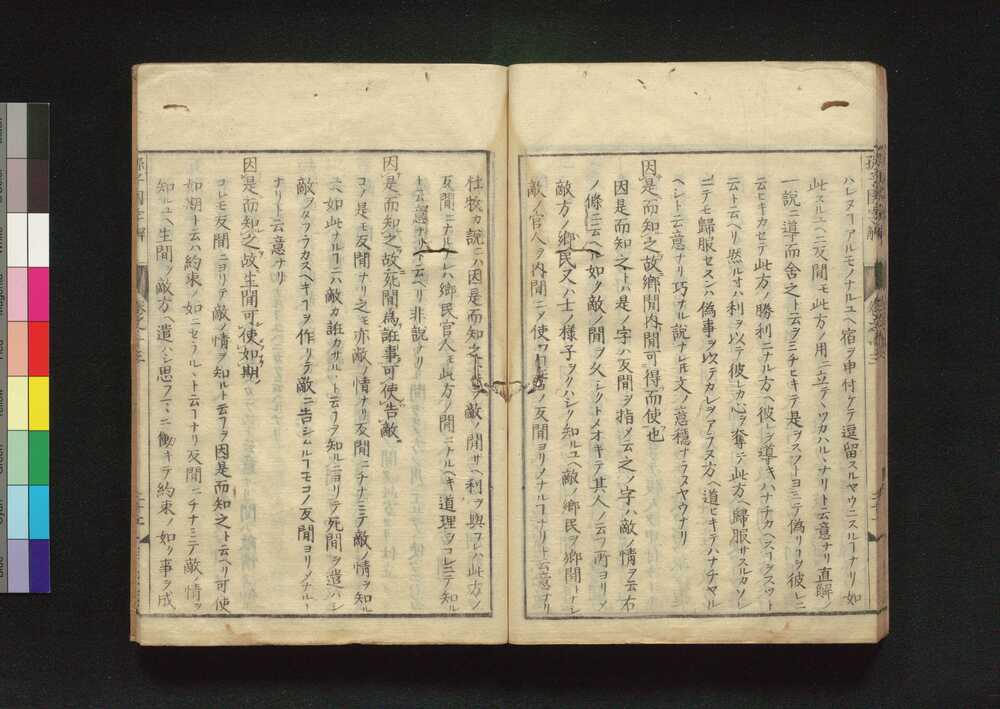 ハレヌーアルモノナルユヘ宿ヲ申付ケテ還留スルヤウニスルヿナリ如
此スルユヘニ反間モ此方ノ用ニ立テツカハルヽナリト云意ナリ直解ノ
一説ニ導而舍之ト云ヲミチヒキテ是ヲ
云ヒキカセテ此方ノ勝利ニナル方ヘ彼レヲ導キハナチカヘス
云ト云ヘリ然ルオハ利ヲ以テ彼レカ心ヲ奪テ此方ヘ歸服サスルカソレ
ニテモ歸服セスンハ偽事ヲ以テカレヲアラヌ方ヘ道ヒキテハナチヤル
ヘシト云意ナリ巧ナル説ナレ𪜈文ノ意穩ナラヌヤウナリ
因是而知之故鄉間内間可得而使也
因是而知之トハ是ノ字ハ反間ヲ指メ云之ノ字ハ敵ノ情ヲ云右
ノ條ニ云ヘル如ク敵ノ間ヲ久シクトメオキテ其人ノ云フ所ヨリメ
敵方ノ鄉民又ハ士ノ様子ヲクハシク知ルユヘ敵ノ鄉民ヲ鄉間トナシ
敵ノ官人ヲ内間ニメ使フヿ皆コノ反間ヨリノナルヿナリト云意ナリ
杜牧カ説ニハ因是而知之トハ敵ノ間サヘ利ヲ與フレハ此方ノ
反間ニナルナレハ鄉民官人モ此方ノ間ニナルヘキ道理ヲコレニテ知ル
ト云意ナリト云ヘリ非説ナリ
因是而知之故死間爲誑事可使告敵
コノ是モ反間ナリ之モ亦敵ノ情ナリ反間ニチナミテ敵ノ情ヲ知ル
ニ如此ナルヿニハ敵カ誑カサルヽト云フヿヲ知ルニヨリテ死間ヲ遣ハシ
敵ヲタフラカスヘキヿヲ作リテ敵ニ告シムルヿモコノ反間ヨリノナルヿ
ナリト云意ナリ
因是而知之故生間可使如期
コレモ反間ニヨリテ敵ノ情ヲ知ルト云フヿヲ因是而知之ト云ヘリ可使
如期トハ約束ノ如ニセラルヽト云フヿナリ反間ニチナミテ敵ノ情ヲ
知ルユヘ生間ヲ敵方ヘ遣ハシ思フマヽニ働キテ約束ノ如ク事ヲ成